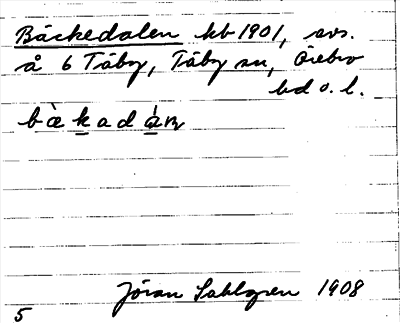 Bäckedalen kb 1901, avs.
å 6 Täby, Täby sn, Örebro
hd o. l.
bækadán
Jöran Sahlgren 1908
5